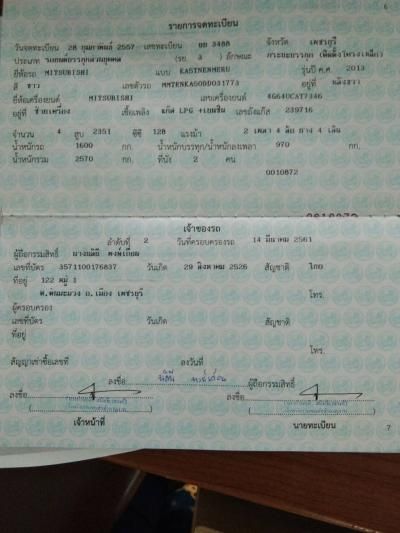 6
รายการจดทะเบียน
วันจดทะเบียน 28 กุมภาพันธ์ 2557 เลขทะเบียน 3488 จังหวัด เพชรบุรี
ประเภท รถยนต์บรรทุกส่วนบุคคล (รย. 3 ) ลักษณะ กระบะบรรทุก
ยี่ห้อรถ MITSUBISHI แบบ KA5TNENMERU รุ่นปี ค.ศ. 2013
สี ขาว เลขตัวรถ MMTENKA50DD031773 อยู่ที่
ยี่ห้อเครื่องยนต์ MITSUBISHI เลขเครื่องยนต์ 4G64UCAT7346
อยู่ที่ ซ้ายเครื่อง เชื้อเพลิง แก๊ส LPG +เบนซิน เลขถังแก๊ส 239716
จำนวน 4 สูบ 2351 ซีซี 128 แรงม้า 2 เพลา 4 ล้อ ยาง 4 เส้น
น้ำหนักรถ 1600 กก. น้ำหนักบรรทุก/น้ำหนักลงเพลา 970 กก.
น้ำหนักรวม 2570 กก. ที่นั่ง 2 คน
0010872
เจ้าของรถ
ลำดับที่ 2 วันที่ครอบครองรถ 14 มีนาคม 2561
ผู้ถือกรรมสิทธิ์
เลขที่บัตร 3571100176837 วันเกิด 29 สิงหาคม 2526 สัญชาติ ไทย
ที่อยู่ 122 หมู่ 1
อ.เมือง เพชรบุรี โทร.
ผู้ครอบครอง
เลขที่บัตร วันเกิด สัญชาติ
ที่อยู่
โทร.
สัญญาเช่าซื้อเลขที่ ลงวันที่
ลงชื่อ ผู้ถือกรรมสิทธิ์
ลงชื่อ ลงชื่อ
เจ้าหน้าที่ นายทะเบียน
7